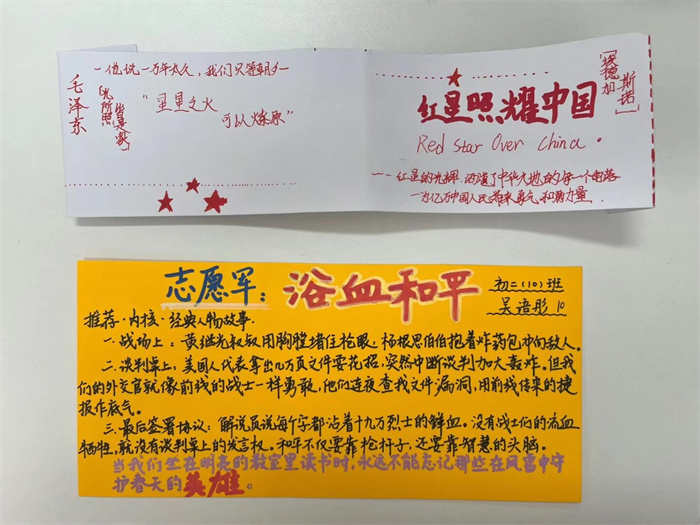 一 他说一万年太久，我们只争朝夕
毛泽东
"星星之火
可以燎原"
「埃德加
斯诺」
红星照耀中国
Red Star Over China.
一一红星的光辉 洒遍了中华大地的每一个角落
一为亿万中国人民带来勇气和力量
志愿军：浴血和平
初二(10)班
吴语彤 10
推荐·内核·经典人物故事.
一.战场上：黄继光叔叔用胸膛堵住枪眼,杨根思伯伯抱着炸药包冲向敌人。
二.谈判桌上：美国人代表拿出几万页文件耍花招,突然中断谈判加大轰炸。但我
们的外交官就像前线的战士一样勇敢,他们连夜查找文件漏洞,用前线传来的捷
报作底气。
三.最后签署协议：解说员说每个字都沾着十九万烈士的鲜血。没有战士们的流血
牺牲,就没有谈判桌上的发言权。和平不仅要靠枪杆子,还要靠智慧的头脑。
当我们坐在明亮的教室里读书时,永远不能忘记那些在风雪中守
护春天的英雄。